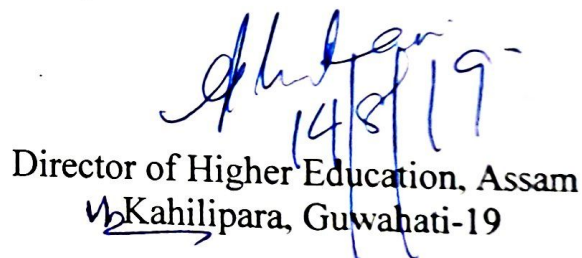 14/8/19
Director of Higher Education, Assam
Kahilipara, Guwahati-19